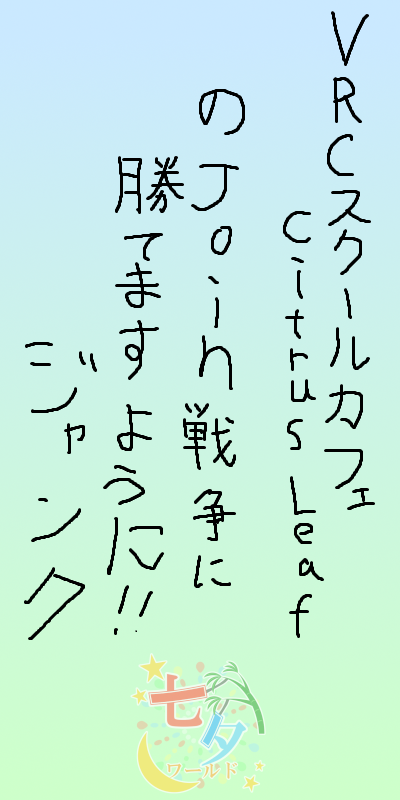 VRCスクールカフェ
Citrus Leaf
のJoin戦争に
勝てますように!!
ジャンク
七夕
ワールド